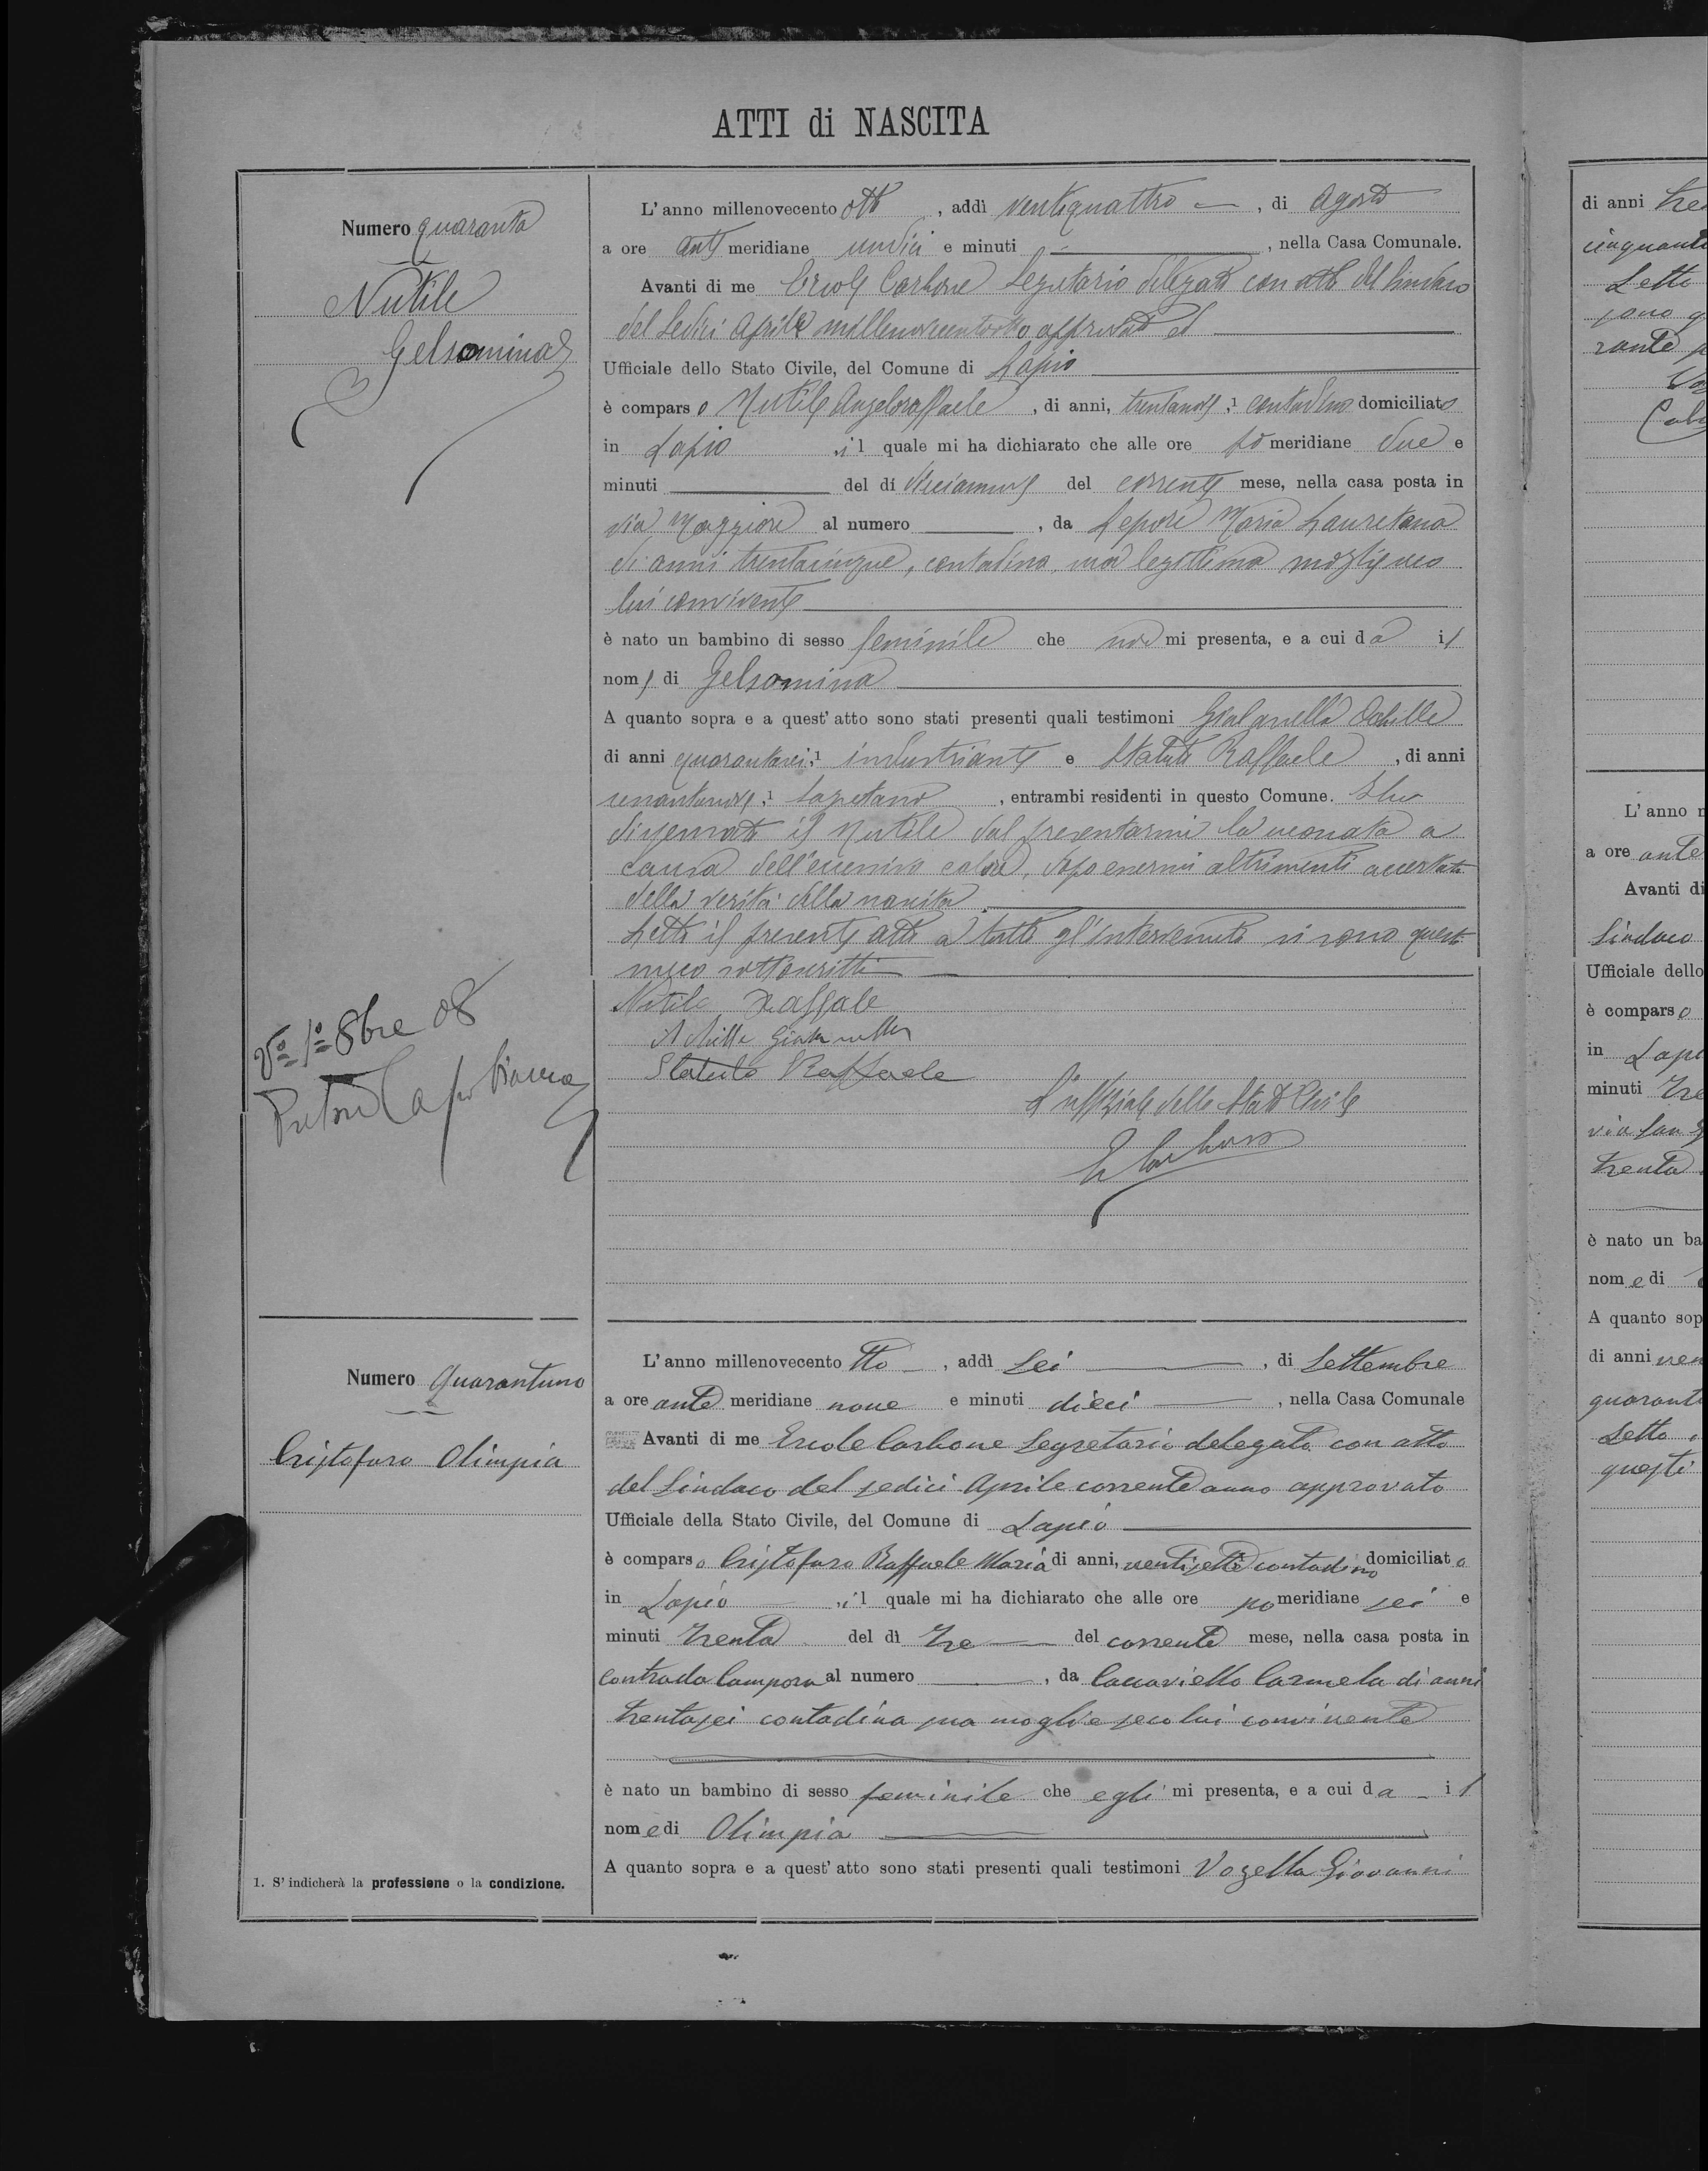 ATTI di NASCITA
Numero quaranta
Nutile
Gelsomina
L'anno millenovecento otto, addì ventiquattro, di Agosto
a ore ante meridiane undici e minuti , nella Casa Comunale.
Avanti di me Ercole Carbone Segretario delegato con atto del Sindaco
del Sedici Aprile millenovecentotto approvato
Ufficiale dello Stato Civile, del Comune di Lapio
è comparso Nutile Angeloraffaele, di anni, trentanove,¹ contadino domiciliato
in Lapio il quale mi ha dichiarato che alle ore po meridiane due e
minuti del dí diciannove del corrente mese, nella casa posta in
via Maggiore al numero , da Lepore Maria Lauretana
di anni trentacinque, contadina, sua legittima moglie seco
lui convivente
è nato un bambino di sesso feminile che non mi presenta, e a cui dà il
nome di Gelsomina
A quanto sopra e a quest' atto sono stati presenti quali testimoni Gialanella Achille
di anni quarantasei,¹ industriante e Statuto Raffaele, di anni
sessantanove,¹ , entrambi residenti in questo Comune. Ho
dispensato il Nutile dal presentarmi la neonata a
causa dell'eccessivo calore, dopo essermi altrimenti accertato
della verità della nascita.
Letto il presente atto a tutti gl'intervenuti si sono questi
meco sottoscritti
Nutile Raffaele
Achille Gialanella
Statuto Raffaele
L'uffiziale dello Stato Civile
E Carbone
Vo 1o 8bre 08
Pretore Capobianco
Numero Quarantuno
Cristofaro Olimpia
L'anno millenovecento tto, addì Sei, di Settembre
a ore ante meridiane nove e minuti dieci, nella Casa Comunale
Avanti di me Ercole Carbone Segretario delegato con atto
del Sindaco del sedici Aprile corrente anno approvato
Ufficiale della Stato Civile, del Comune di Lapio
è comparso Cristofaro Raffaele Maria di anni, ventisette contadino domiciliato
in Lapio il quale mi ha dichiarato che alle ore po meridiane sei e
minuti trenta del dì tre del corrente mese, nella casa posta in
contrada Campora al numero , da Caccaviello Carmela di anni
trentasei contadina sua moglie seco lui convivente
è nato un bambino di sesso feminile che egli mi presenta, e a cui da il
nome di Olimpia
A quanto sopra e a quest' atto sono stati presenti quali testimoni Vozella Giovanni
1. S' indicherà la professione o la condizione.
di anni tre
cinquant
Letto
sono q
rante
L'anno
a ore ante
Avanti di
Sindaco
Ufficiale dello
è comparso
in Lapi
minuti tre
via San
trenta
è nato un ba
nome di
A quanto sop
di anni ven
quarant
Letto
questi